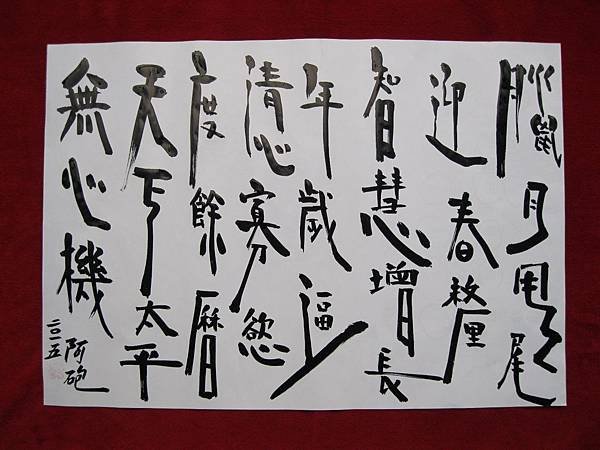 臘月甩尾
迎春釐
智慧增長
年歲逼
清心寡慾
度餘曆
天下太平
無心機
阿砲
二〇一五